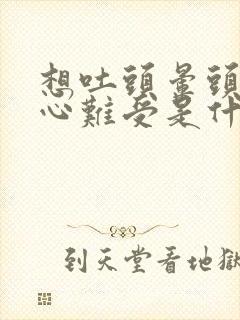 想吐頭暈頭
心難受是什
到天堂看地獄